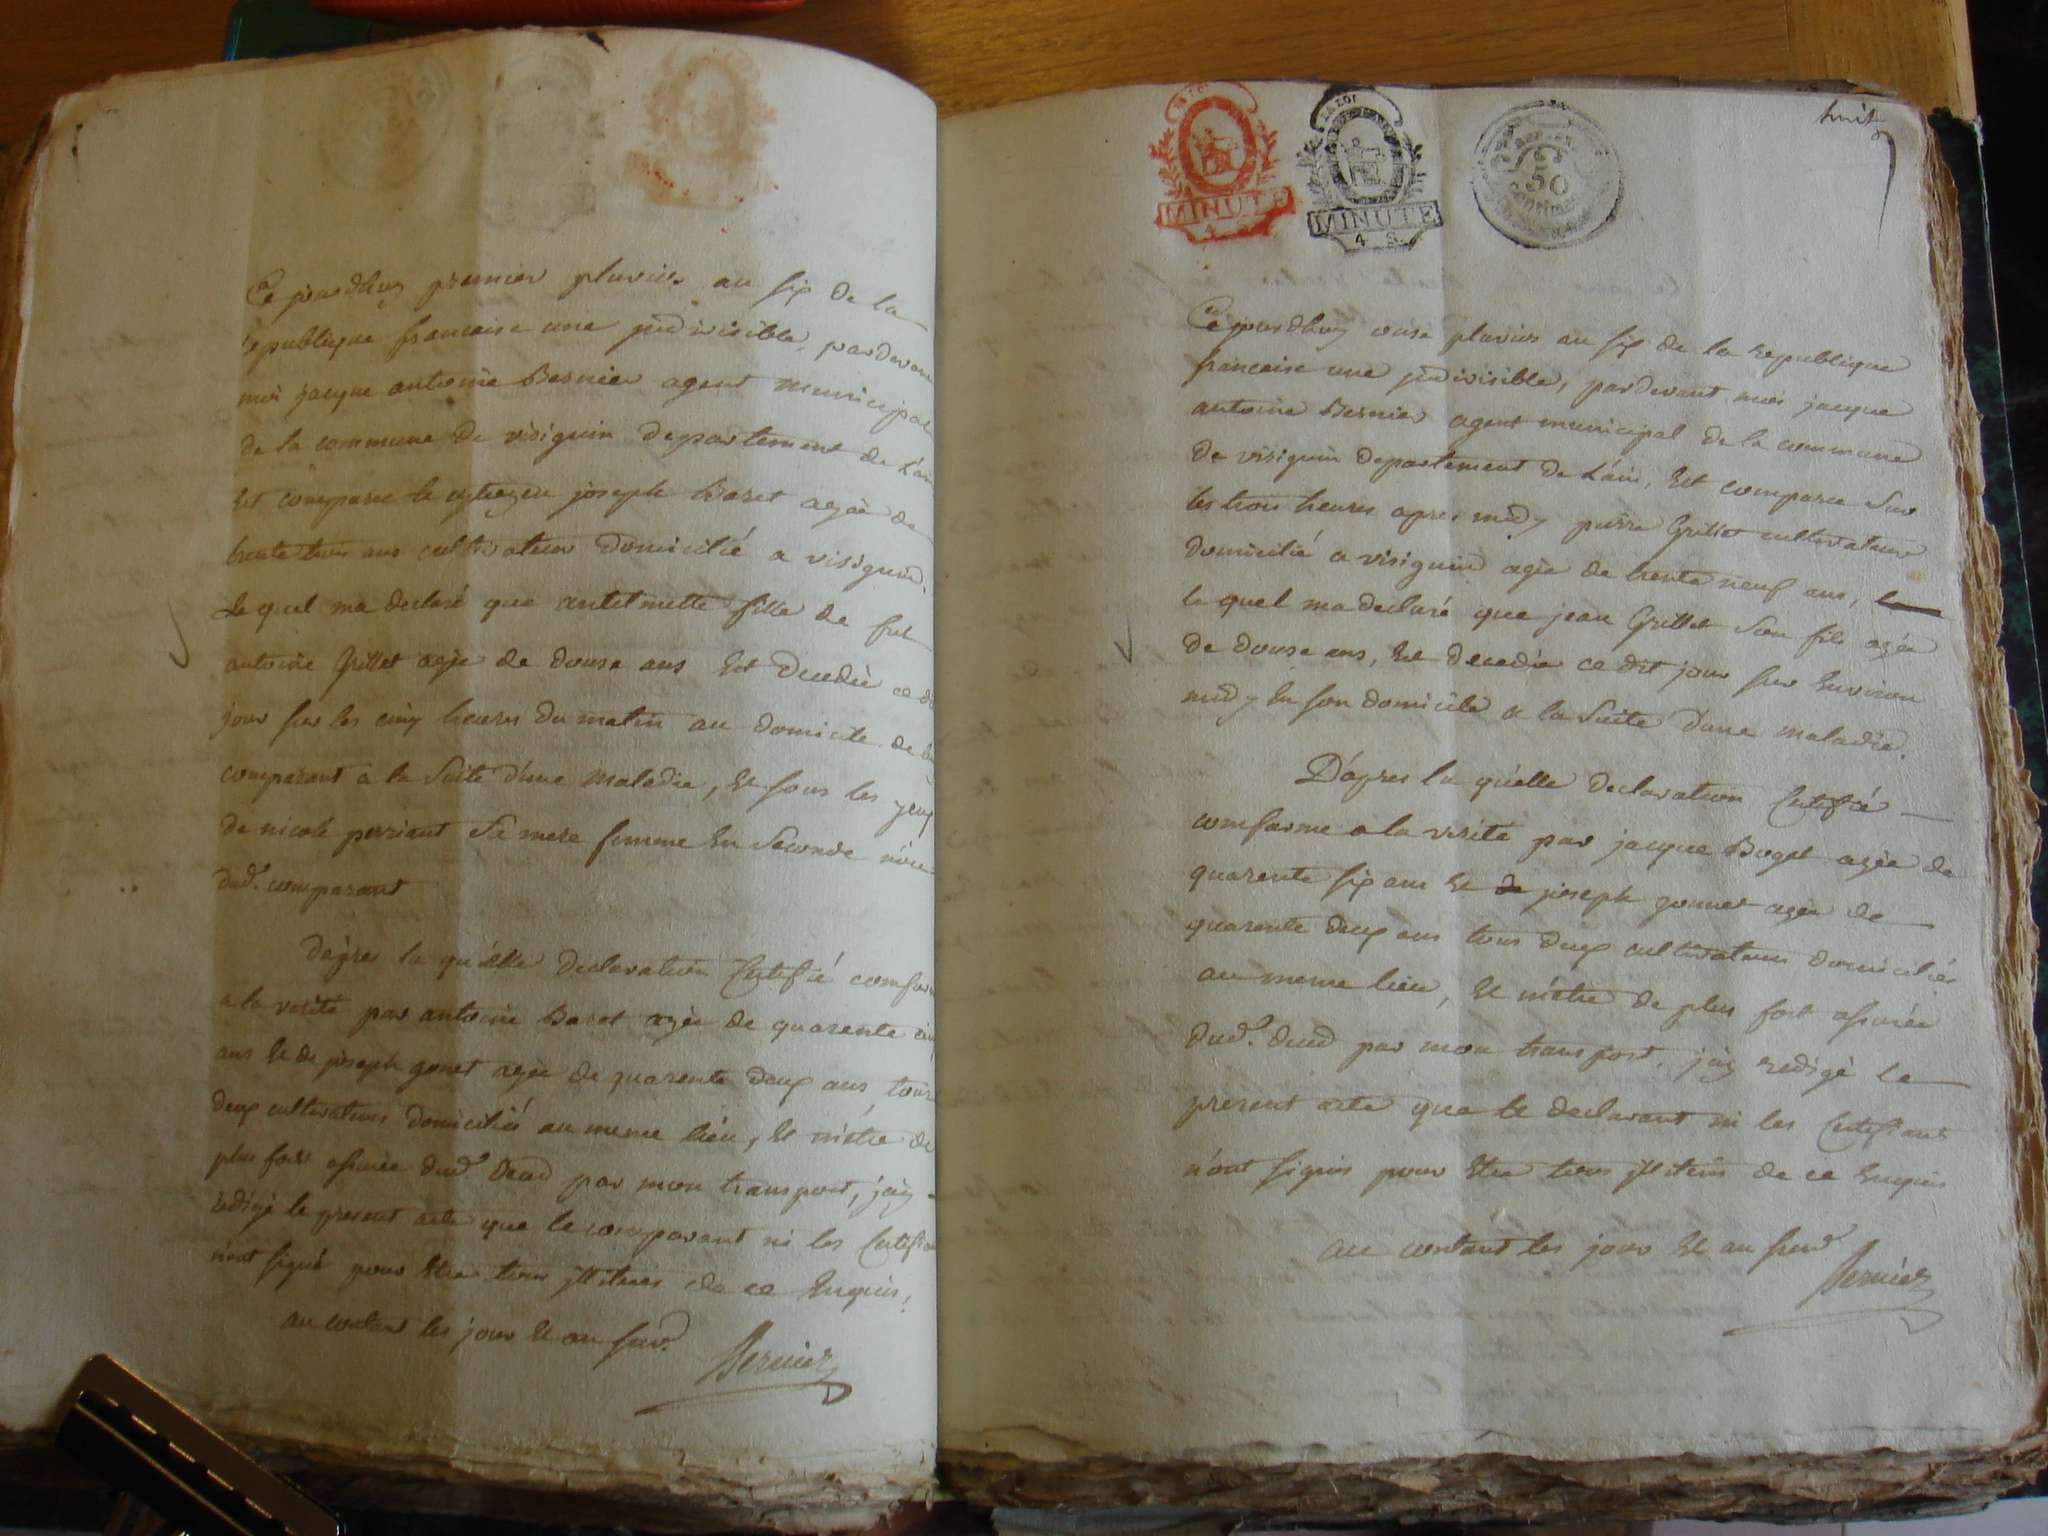 Ce jourdhuy premier pluvios an six de la
republique francaise une indivisible, pardevant
moi jacque antoine Bernier agent municipal
de la commune de visignin departement de L'ain
Est comparu le cytoyen joseph Baret agée de
trente trois ans cultivateur domicilié a visignin,
Le quel ma declaré que antelmette fille de fut
antoine Grillet agée de douse ans Est Decedée ce dit
jour sur les cinq heures du matin au domicile de
comparant a la suite d'une maladie, Et sous les yeux
de nicole perriant sa mere femme En seconde
dud. comparant
D'apres la qu'elle declaration Certifié comforme
a la verité par antoine Baret agée de quarente cinq
ans Et de joseph gonet agée de quarente deux ans tous
deux cultivateurs domicilié au meme lieu, Et m'etre de
plus fort assurée dud. Deced par mon transport, j'ay
redigé le present acte que le comparant ni les Certifiant
n'ont signé pour Etre tous illiterés de ce Enquis,
au contant les jour Et an susd.
Bernier
huit
AN 7 Loi
MINUTE
4
MINUTE
4 S.
50
Centimes
Ce jourdhuy onse pluvios an six de la republique
francaise une indivisible, pardevant moi jacque
antoine Bernier agent municipal de la commune
de visignin departement de L'ain, Est comparu sur
les trois heures apres midy pierre Grillet cultivateur
domicilié a visignin agée de trente neuf ans,
le quel ma declaré que jean Grillet son fils agée
de douse ans, Est decedée ce dit jour sur Environ
midy En son domicile a la suite d'une maladie.
D'apres la qu'elle declaration Certifié
comforme a la verité par jacque Boget agée de
quarente six ans Et de joseph gonnet agée de
quarente deux ans tous deux cultivateurs domiciliés
au meme lieu, Et m'etre de plus fort assurée
dud. deced par mon transport, j'ay redigé le
present acte que le declarant ni les Certifiant
n'ont signés pour Etre tous illiterés de ce Enquis
au contant les jour Et an susd.
Bernier